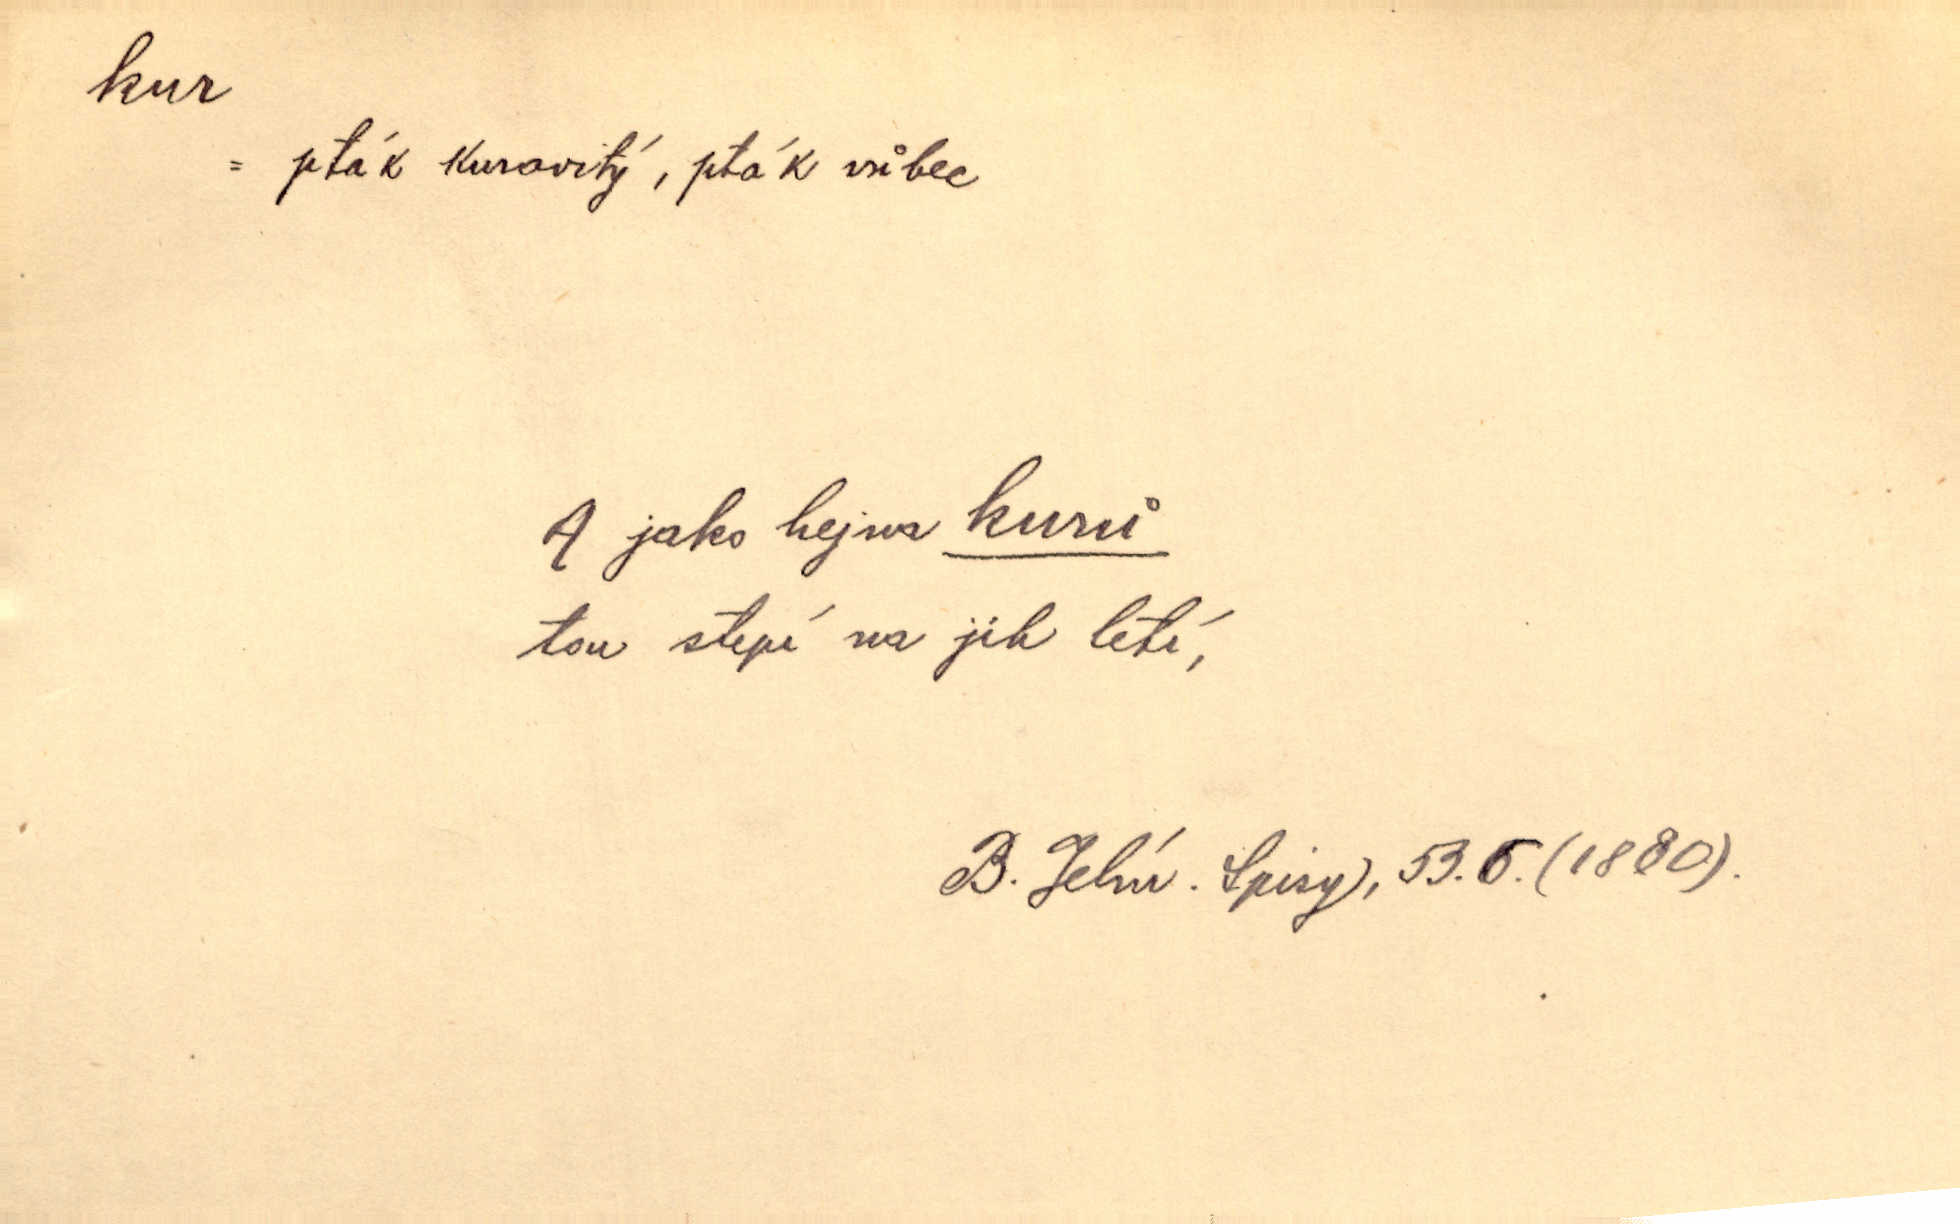 kur
= pták kurovitý, pták vůbec
A jako hejna kurů
tou stepí na jih letí,
B. Jelín. Spisy, 53. 6. (1880).